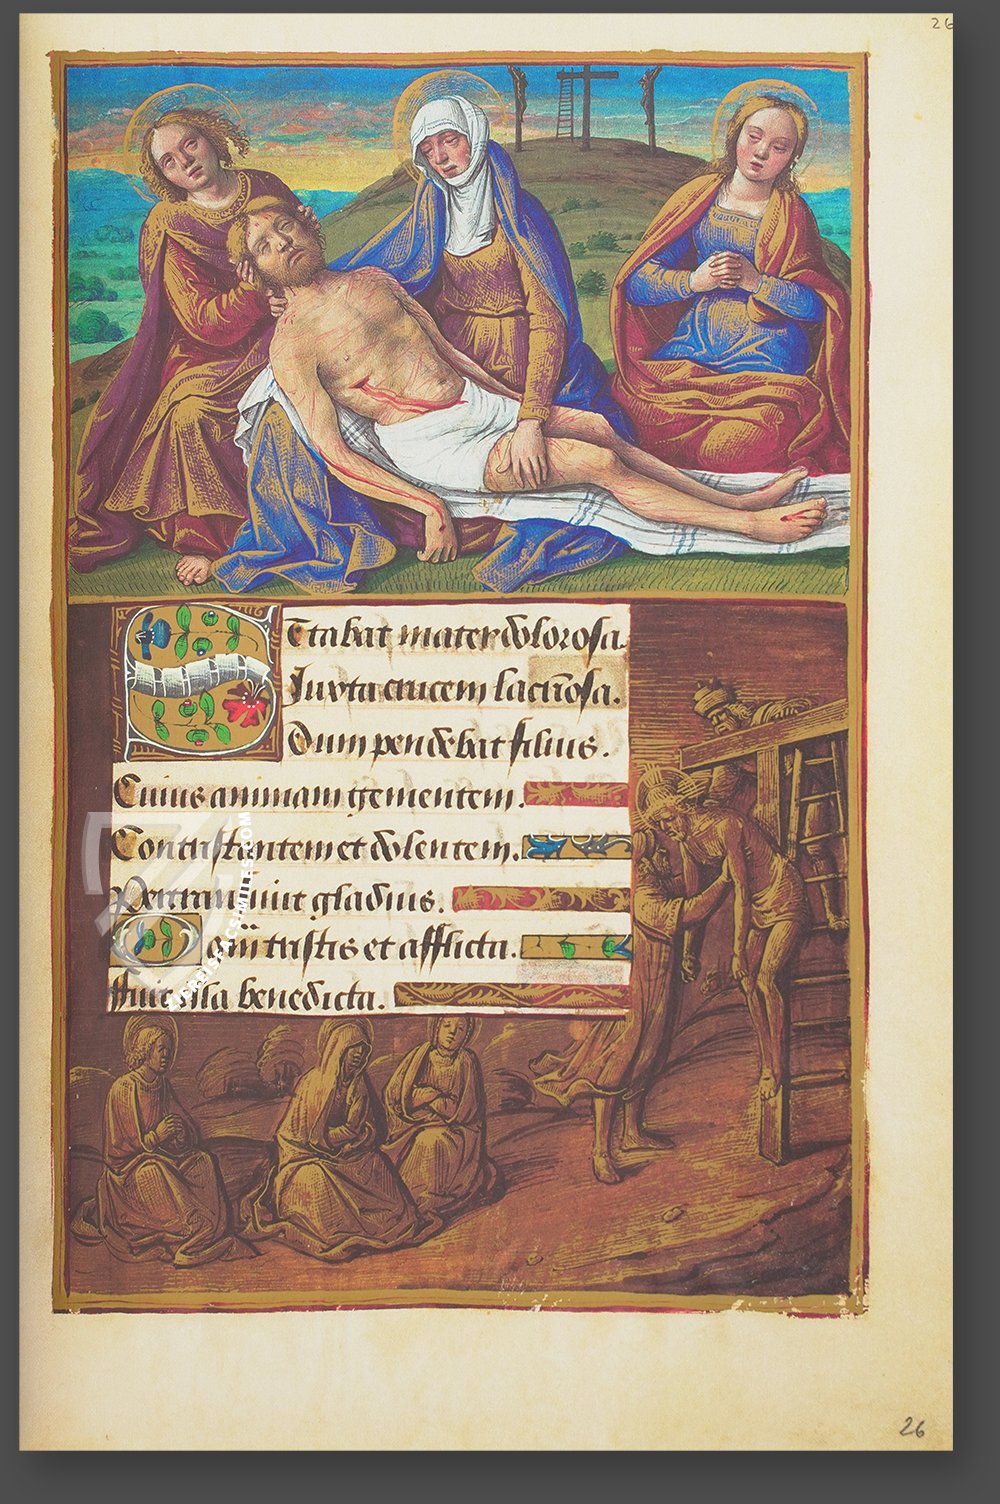 26
Stabat mater dolorosa.
Juxta crucem lacrimosa.
Dum pendebat filius.
Cuius animam gementem.
Contristantem et dolentem.
Pertransiuit gladius.
O quam tristis et afflicta.
ffuit illa benedicta.
FACSIMILES.COM
26